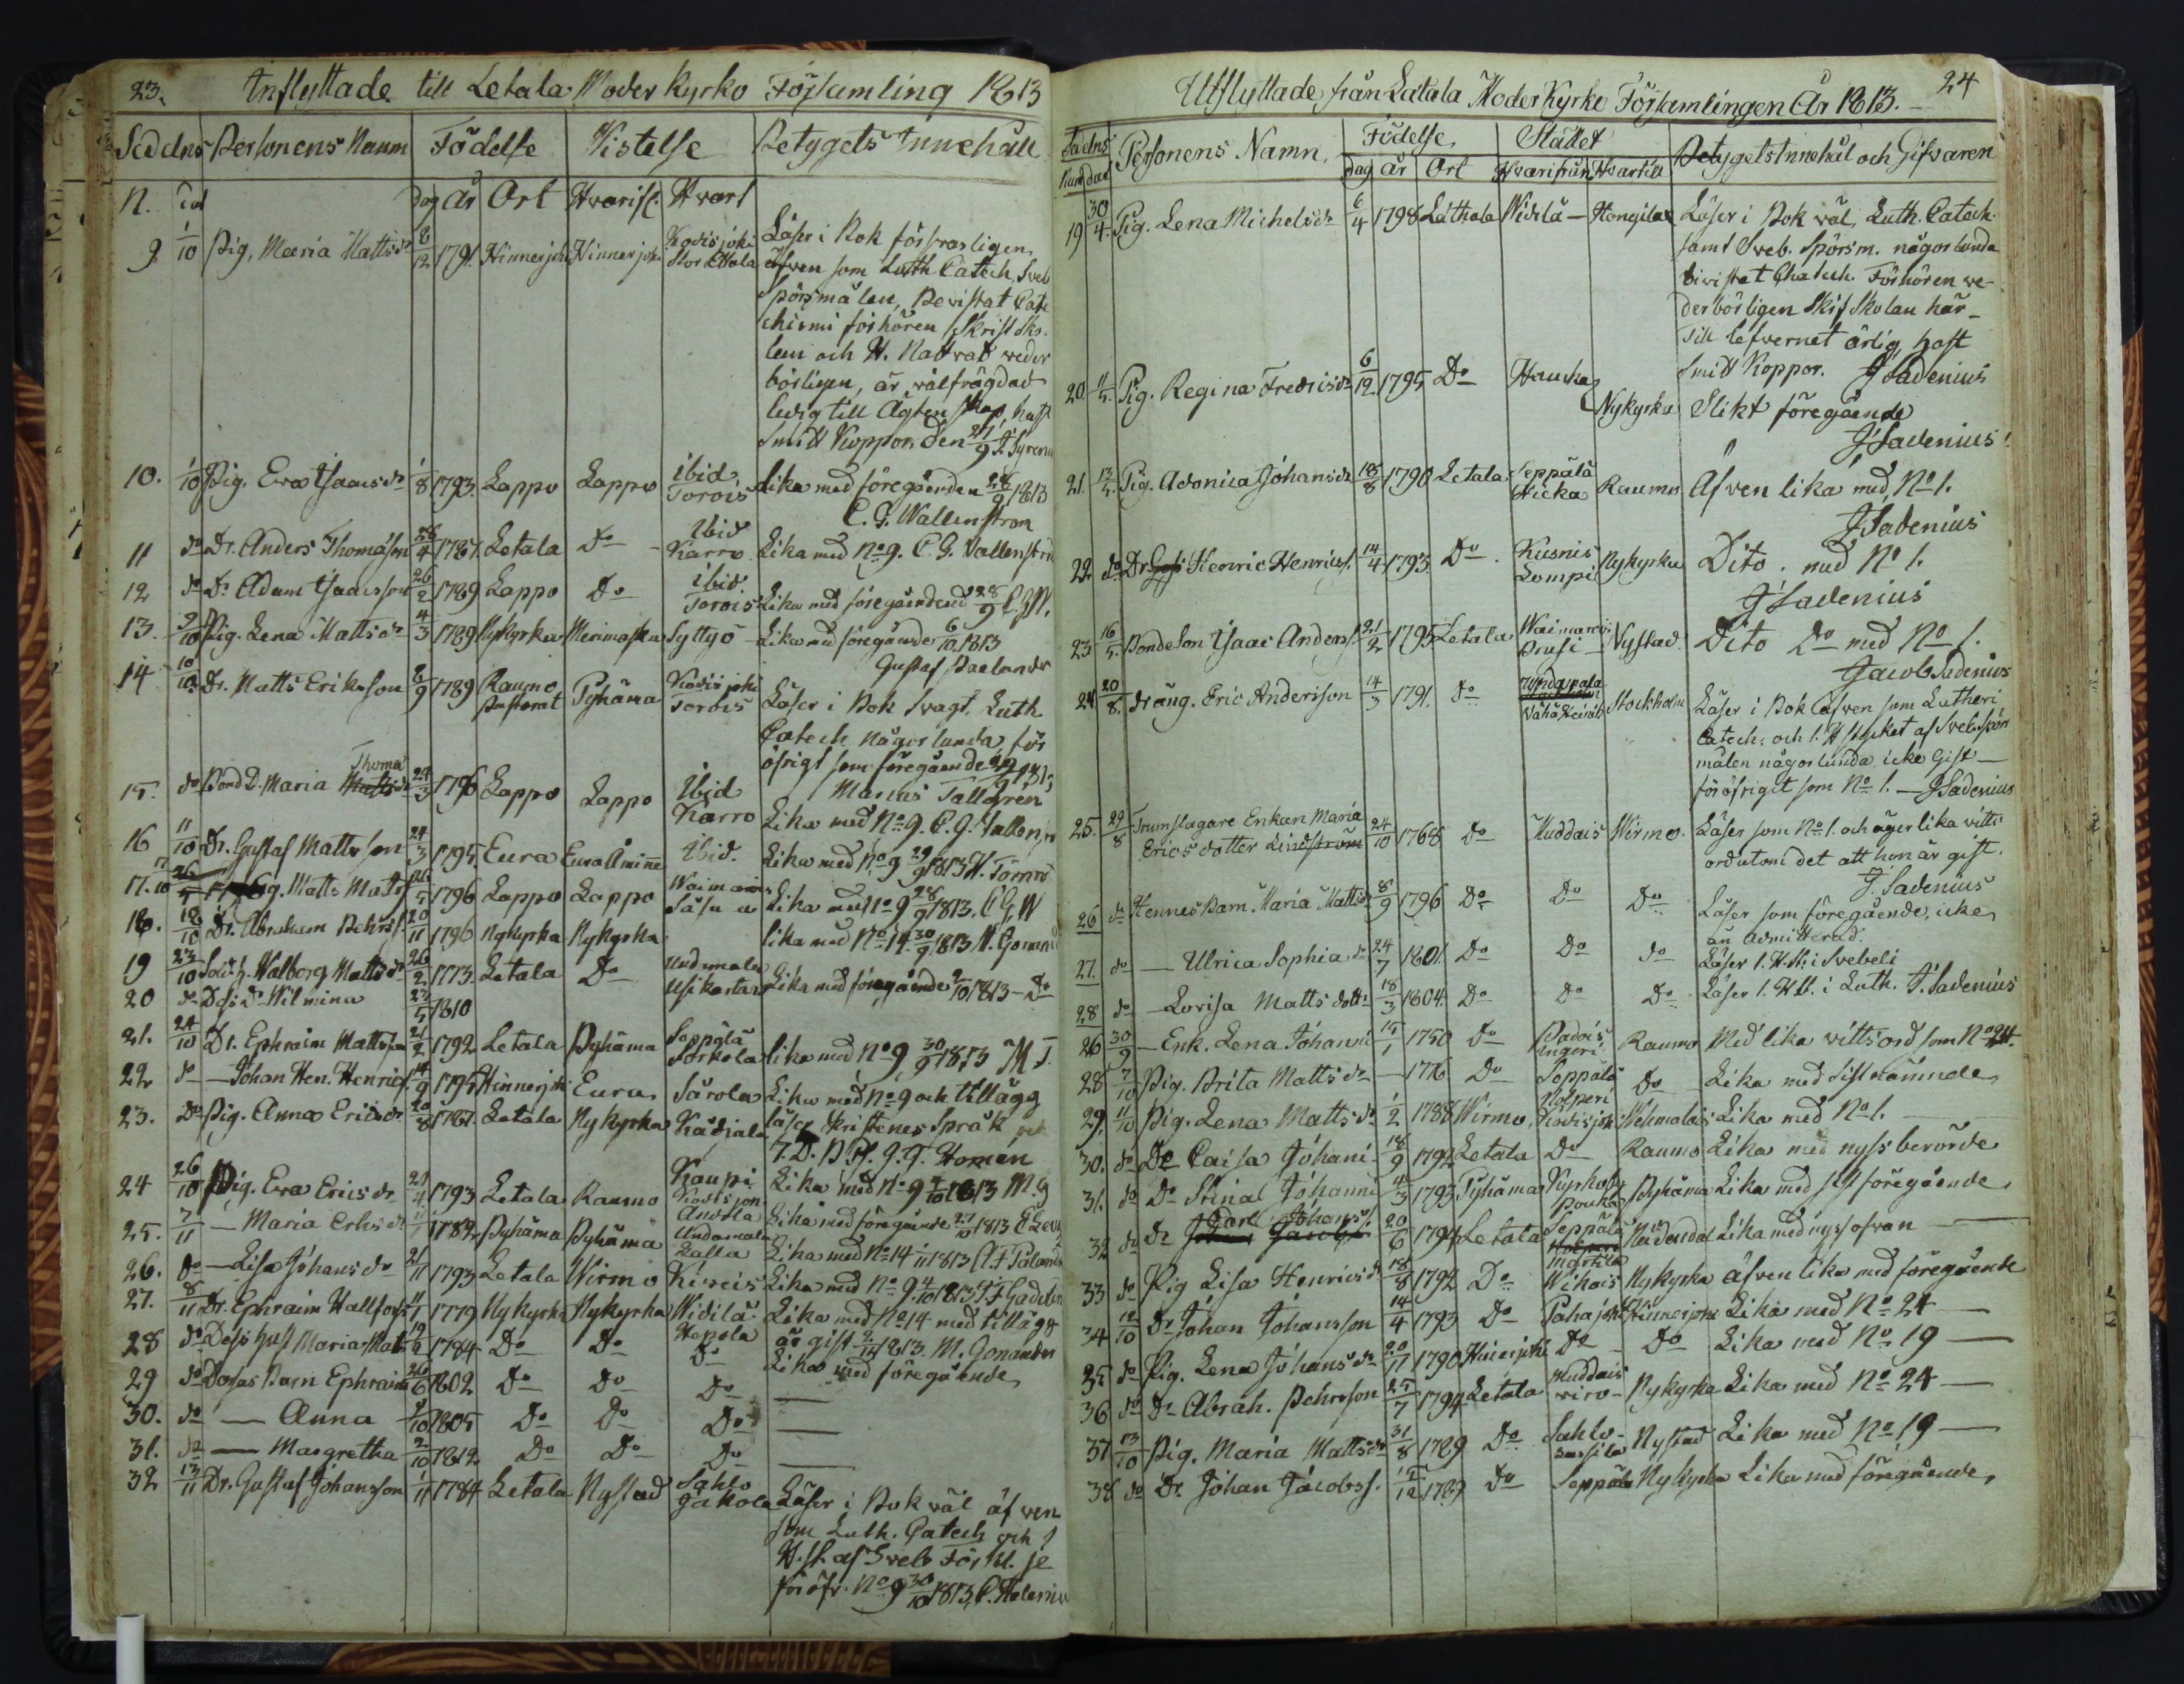 23.
Inflyttade till Letala Moder Kyrko Församling 1813
Sedelns Personens Namn Födelse Vistelse Betygets Innehåll
N. Dag År Ort Hvarifr. Hvart
9 1/10 Pig. Maria Mattsdr 8/12 1791. Hinnerjoki Hinnerjoki Kodisjoki Läser i Bok försvarligen
äfven som Luth Catech, Sveb
Spörsmålen, Bevistat Cate
chismi förhören Skrift Sko-
lan och H. Nattvard veder
börligen, är välfrägdad
ledig till Ägtenskap, haft
Smitt Koppor, den 27/9
10. 1/10 Pig. Eva Isaacsdr 1/8 1793. Lappo Lappo ibid Torois Lika med föregående 28/9 1813
C. G. Wallenstrom
11 do Dr. Anders Thomasson 28/4 1787. Letala Do Ibid Karro Lika med No 9. C. G. Wallenstrom
12 do Dr Adam Isaacsson 26/2 1789 Lappo Do ibid Torois Lika med föregående 28/9 C. G. W.
13. 9/10 Pig. Lena Mattsdr 4/3 1789 Nykyrka Merimaska Syttyö Lika med föregående 6/10 1813
14 10/10 Dr. Matts Eriksson 6/9 1789 Raumo Pastorat Pyhäma Kodisjoki Torois Läser i Bok svagt, Luth
Catech någorlunda, för
öfrigt som föregående 29/9 1813
Marcus Tallgren
15. do Bond D. Maria Thoma 24/3 1796 Lappo Lappo Ibid Karro Lika med No 9. C. G. Wallen
16 11/10 Dr. Gustaf Mattsson 24/3 1795 Eura Eura Ibid. Lika med No 9 29/9 1813
17. Matts Matts 1796 Lappo Lappo Lika med No 9 28/9 1813. C G W
18. 18/10 Dr. Abraham Pehrss. 20/11 1796 Nykyrka Nykyrka lika med No 14. 30/9 1813
19 23/10 Walborg Mattsdr 26/2 1773. Letala Do Undamala Lika med föregående 2/10 1813 Do
20 do Wilmina 1810
21. 24/10 Dr. Ephraim Mattsson 21/2 1792 Letala Pyhäma Seppälä Sorkola lika med No 9, 30/9 1813 M T.
22 do Johan Hen. Henrics. 14/9 1795 Hinnerjoki Eura Särola Lika med No 9 och tillägg
23. Do Pig. Anna Ericsdr 20/8 1787. Letala Nykyrka Kådjala läser Skriftenes Språk
24 26/10 Pig. Eva Ericsdr 1793 Letala Raumo Kaupi Kodisjoki Lika med No 9 1813
25. 7/11 Maria Erhsdr 1782 Pyhäma Pyhäma Anoila Lika med föregående 27/10 1813
26. Do Lisa Johansdr 21/11 1793 Letala Wirmo Undamala Lalla Lika med No 14 1/11 1813
27. 8/11 Dr. Ephraim 1779 Nykyrka Nykyrka Kiveis Lika med No 9 4/10 1813
28 do Dess Hust Maria Matts 1784 Do Do Widilä Hepola Lika med No 14 med tillägg
är gift 1813. M. Gonander
29 do Deras Barn Ephraim 26/6 1802 Do Do Do Lika med föregående
30. do Anna 1805 Do Do Do
31. do Margretha 2/10 1812 Do Do Do
32 13/11 Dr. Gustaf Johansson 1/11 1784 Letala Nystad Sahlo Jakola Läser i Bok väl äfven
som Luth. Catech och
H. st. af Sveb
för öfr. No 9 30/10 1813
24
Utflyttade från Letala Moder Kyrko Församlingen År 1813.
Sedelns Personens Namn. Födelse Stället Betygets Innehål och Gifvaren
dag år Ort Hvarifrån Hvartill
19 30/4. Pig. Lena Michelsdr 6/4 1798 Låthala Widilä Läser i Bok väl, Luth. Catech.
samt Sveb. Spörsm. någorlunda
bivistat Chatech. Förhören we-
derbörligen Skrif Skolan här-
Till lefvernet ärlig, haft
Smitt Koppor. J Sadenius
20. Pig. Regina Fredrisdr 6/12 1795 Do Haucka Nykyrka Slikt föregående
J Sadenius
21. 13/5. Pig. Adonica Johansdr 18/8 1790 Letala Seppälä Hicka Raumo Äfven lika med, No 1.
J Sadenius
22. do Dr Henric Henricss. 14/4 1793 Do Kusnis Lompi Nykyrka Dito. med No 1.
J Sadenius
23 16/5. Bondeson Isaac Anderss. 21/2 1795 Letala Nystad Dito Do med No 1.
Jacob Sadenius
24 20/8. dräng. Eric Andersson 14/3 1791. do Stockholm Läser i Bok äfven som Lutheri
Catech. och 1. H stycket af Sveb. Spörs
målen någorlunda icke Gift
för öfriget som No 1. J Sadenius
25. 29/8 Trumslagare Enkan Maria Ericsdotter Lindström 24/10 1768 do Muddais Wirmo. Läser som No 1. och äger lika witts
ord utom det att hon är gift.
J. Sadenius
26 do Hennes Barn. Maria Mattsd 8/9 1796 Do Do Do Läser som föregående, icke
än admitterad.
27. do Ulrica Sophia d 24/7 1801. Do Do do Läser 1. H. St. i Svebeli
28 do Lovisa Matts dott. 18/3 1804 Do Do Do Läser 1. H St. i Luth. J. Sadenius
26 30/9 Enk. Lena Johansd 15/1 1750 do Padois Raumo Med lika wittsord som No 24.
28 7/10 Pig. Brita Mattsdr 1776 Do Seppälä Do Lika med sistnämnde
29. 11/10 Pig. Lena Mattsdr 1/2 1788 Wirmo Kodisjoki Wehmalais Lika med No 1.
30. do Do Caisa Johani 18/9 1792 Letala Do Raumo Lika med nyss berörde
31. do Do Stina Johanni 4/3 1793 Pyhäma Pyhäma Lika med sist föregående
32 do Dr Carl Johanss. 20/6 1794 Letala Seppälä Martila Nådendal Lika med nyss ofvan
33 do Pig Lisa Henricsd 18/8 1792 Do Wihais Nykyrka äfven lika med föregående
34 12/10 Dr Johan Johansson 14/4 1793 Do Pahajoki Hinnerjoki Lika med No 24
35 do Pig. Lena Johansdr 20/11 1790 Hinnerjoki Do Do Lika med No 19
36 do Dr Abrah. Pehrsson 25/7 1794 Letala Muddais Nykyrka Lika med No 24
37 13/10 Pig. Maria Mattsdr 31/8 1789 Do Sahlo Nystad Lika med No 19
38 do Dr. Johan Jacobss. 15/12 1789 Do Seppälä Nykyrka Lika med föregående,